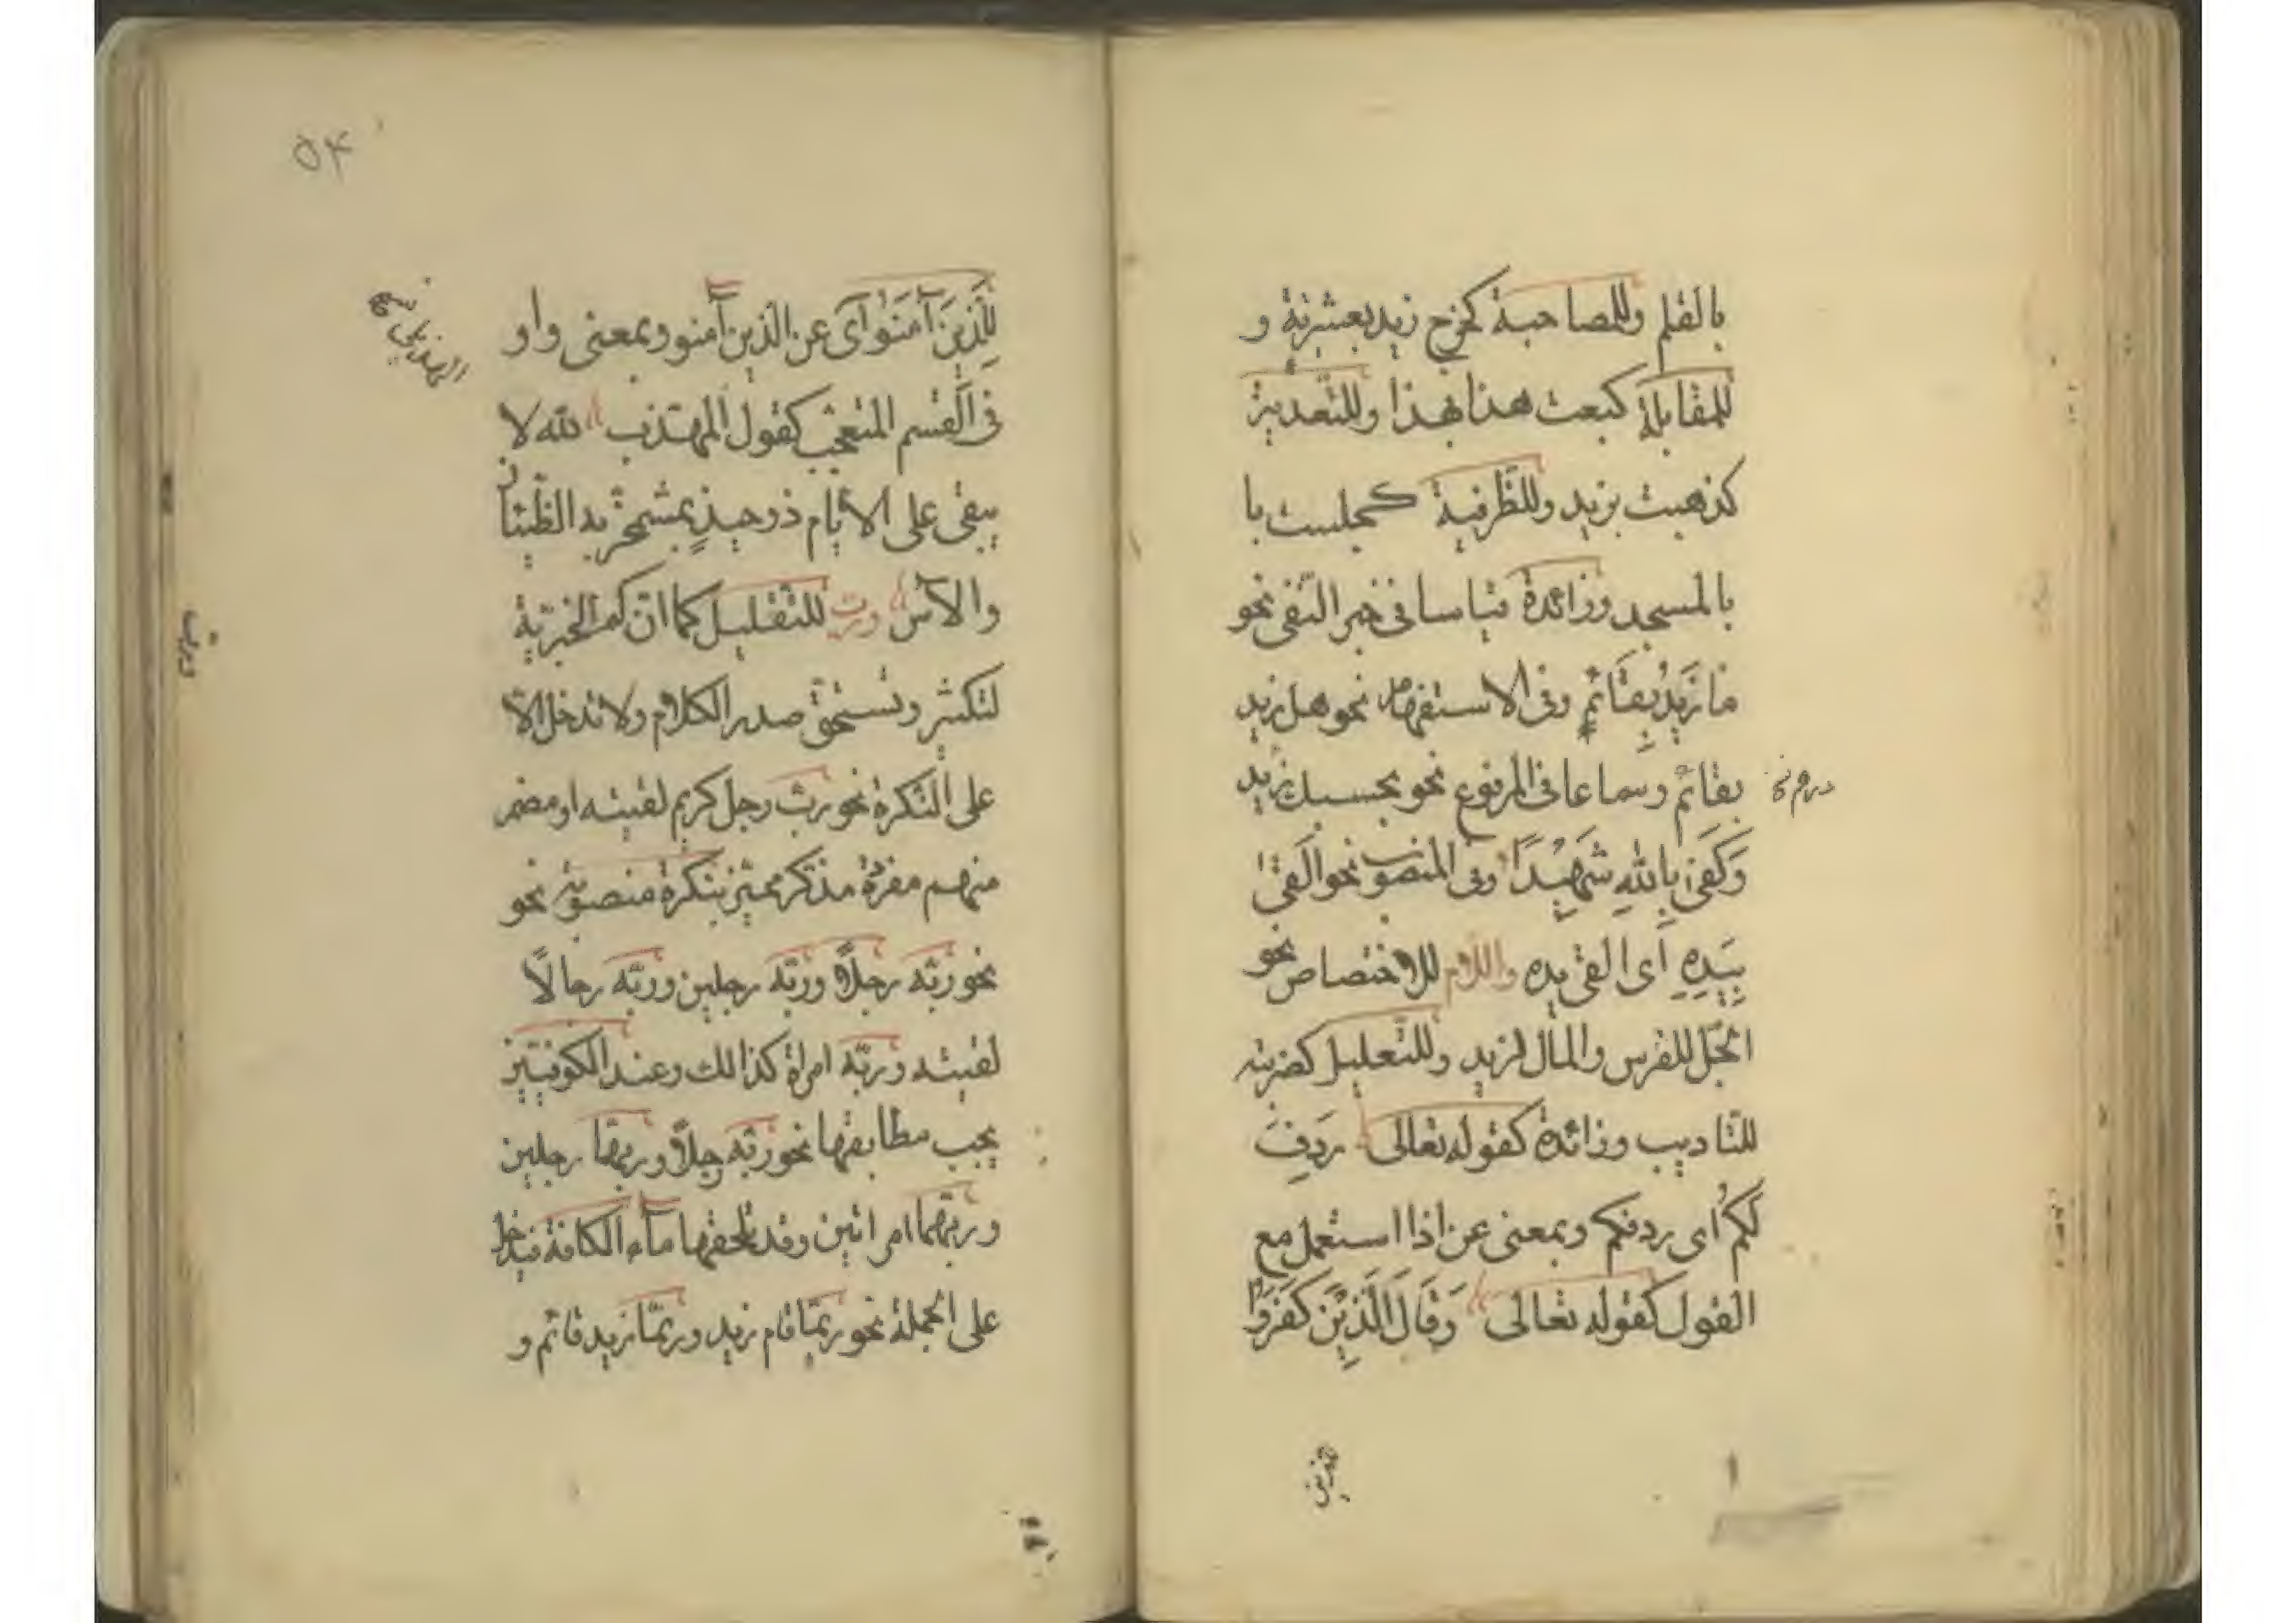 بالقلم وللمصاحبة كخرج زيد بعشرته و
للمقابلة كبعت هذا بهذا وللتعدية
كذهبت بزيد وللظرفية كجلست با
بالمسجد وزائدة قياسا فى خبر النفى نحو
ما زَيدٌ بِقائمٍ وفى الاستفهام نحو هل زيد
بقائم وسماعا فى المرفوع نحو بحسبك زيد
وَكَفىٰ بِاللهِ شَهِيْدًا وفى المنصوب نحو القىٰ
بِيَدِهِ اى القى يده واللام للاختصاص نحو
الجلّ للفرس والمال لزيد وللتعليل كضربته
للتاديب وزائدة كقوله تعالى رَدِفَ
لَكُم اى ردفكم وبمعنى عن اذا استعمل مع
القول كقوله تعالى وَقَالَ الَّذِيْنَ كَفَرُوا
۵۴
لِلَّذِينَ آمَنُوا اى عن الذين آمنو وبمعنى واو
فى القسم المتعجب كقول المهذب لله لا
يبقى على الايام ذو حيدٍ بمشمخرّ به الظيان
والآس ورب للتقليل كما ان كم الخبرية
لتكثير وتستحق صدر الكلام ولا تدخل الا
على النكرة نحو رب رجل كريم لقيته او مضمر
منهم مفردة مذكر مميز بنكرة منصوبة نحو
نحو ربّه رجلاً وربّه رجلين وربّه رجالاً
لقيته وربّه امراة كذالك وعند الكوفيين
يجب مطابقتها نحو ربّه رجلاً وربهما رجلين
وربهما امراتين وقد تلحقها ماء الكافة فيدخل
على الجملة نحو ربّما قام زيد وربّما زيد قائم و